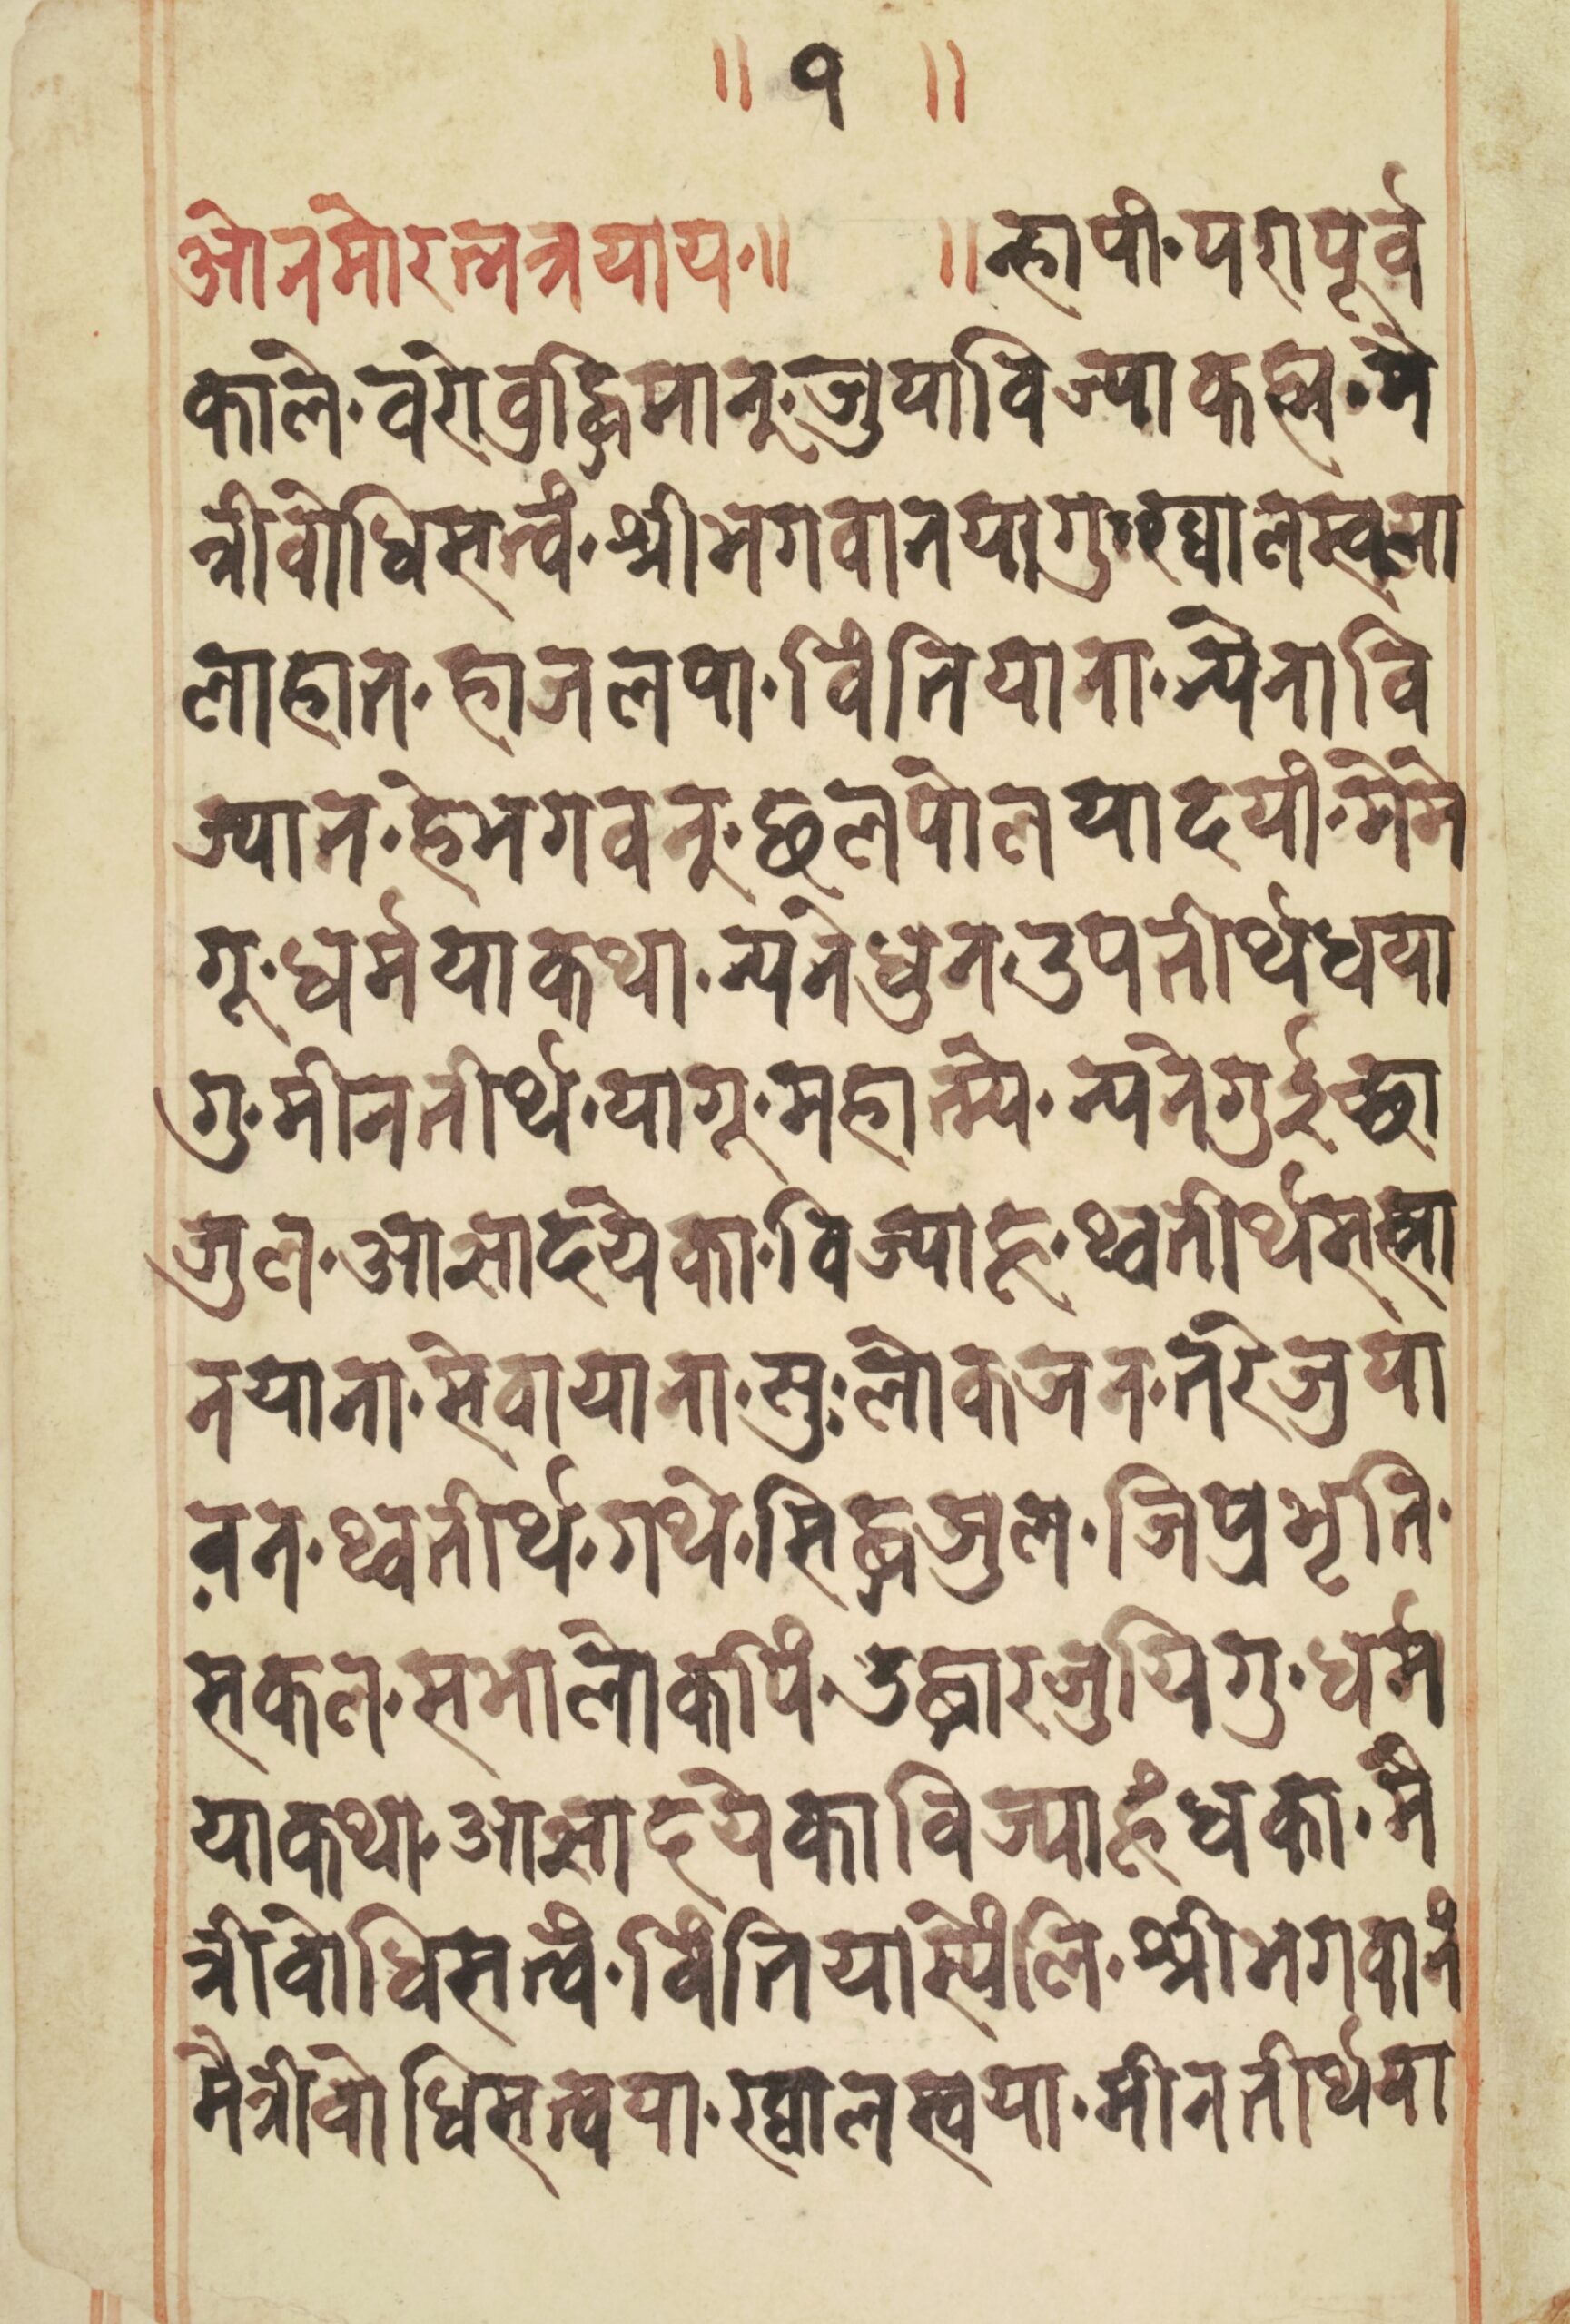 ॥ १ ॥
ओंनमोरत्नत्रयाय॰॥ ॥न्हापां॰परापूर्व
काले॰वरोवुद्धिमान्॰जुयाविज्याकह्म॰मै
त्रीवोधिसत्त्वं॰श्रीभगवानयागुख्वालस्वया
लाहात॰हाजलपा॰विंतियाना॰न्येनावि
ज्यात॰हेभगवन्॰छलपोलयादयां॰मेमे
गू॰धर्मयाकथा॰न्यनेधुन॰उपतीर्थधया
गु॰मीनतीर्थ॰यागू॰महात्म्ये॰न्यनेगुईच्छा
जुल॰आज्ञादयेका॰विज्याहु॰थ्वतीर्थसस्ना
नयाना॰सेवायाना॰सु॰लोकजन॰तरेजुया
वन॰थ्वतीर्थ॰गथे॰सिद्धजुल॰जिप्रभृति॰
सकल॰सभालोकपिं॰उद्धारजुयिगु॰धर्म
याकथा॰आज्ञादयेकाविज्याहुंधका॰मै
त्रीवोधिसत्वं॰विंतियास्येंलि॰श्रीभगवानं
मैत्रीवोधिसत्वया॰ख्वालस्वया॰मीनतीर्थया